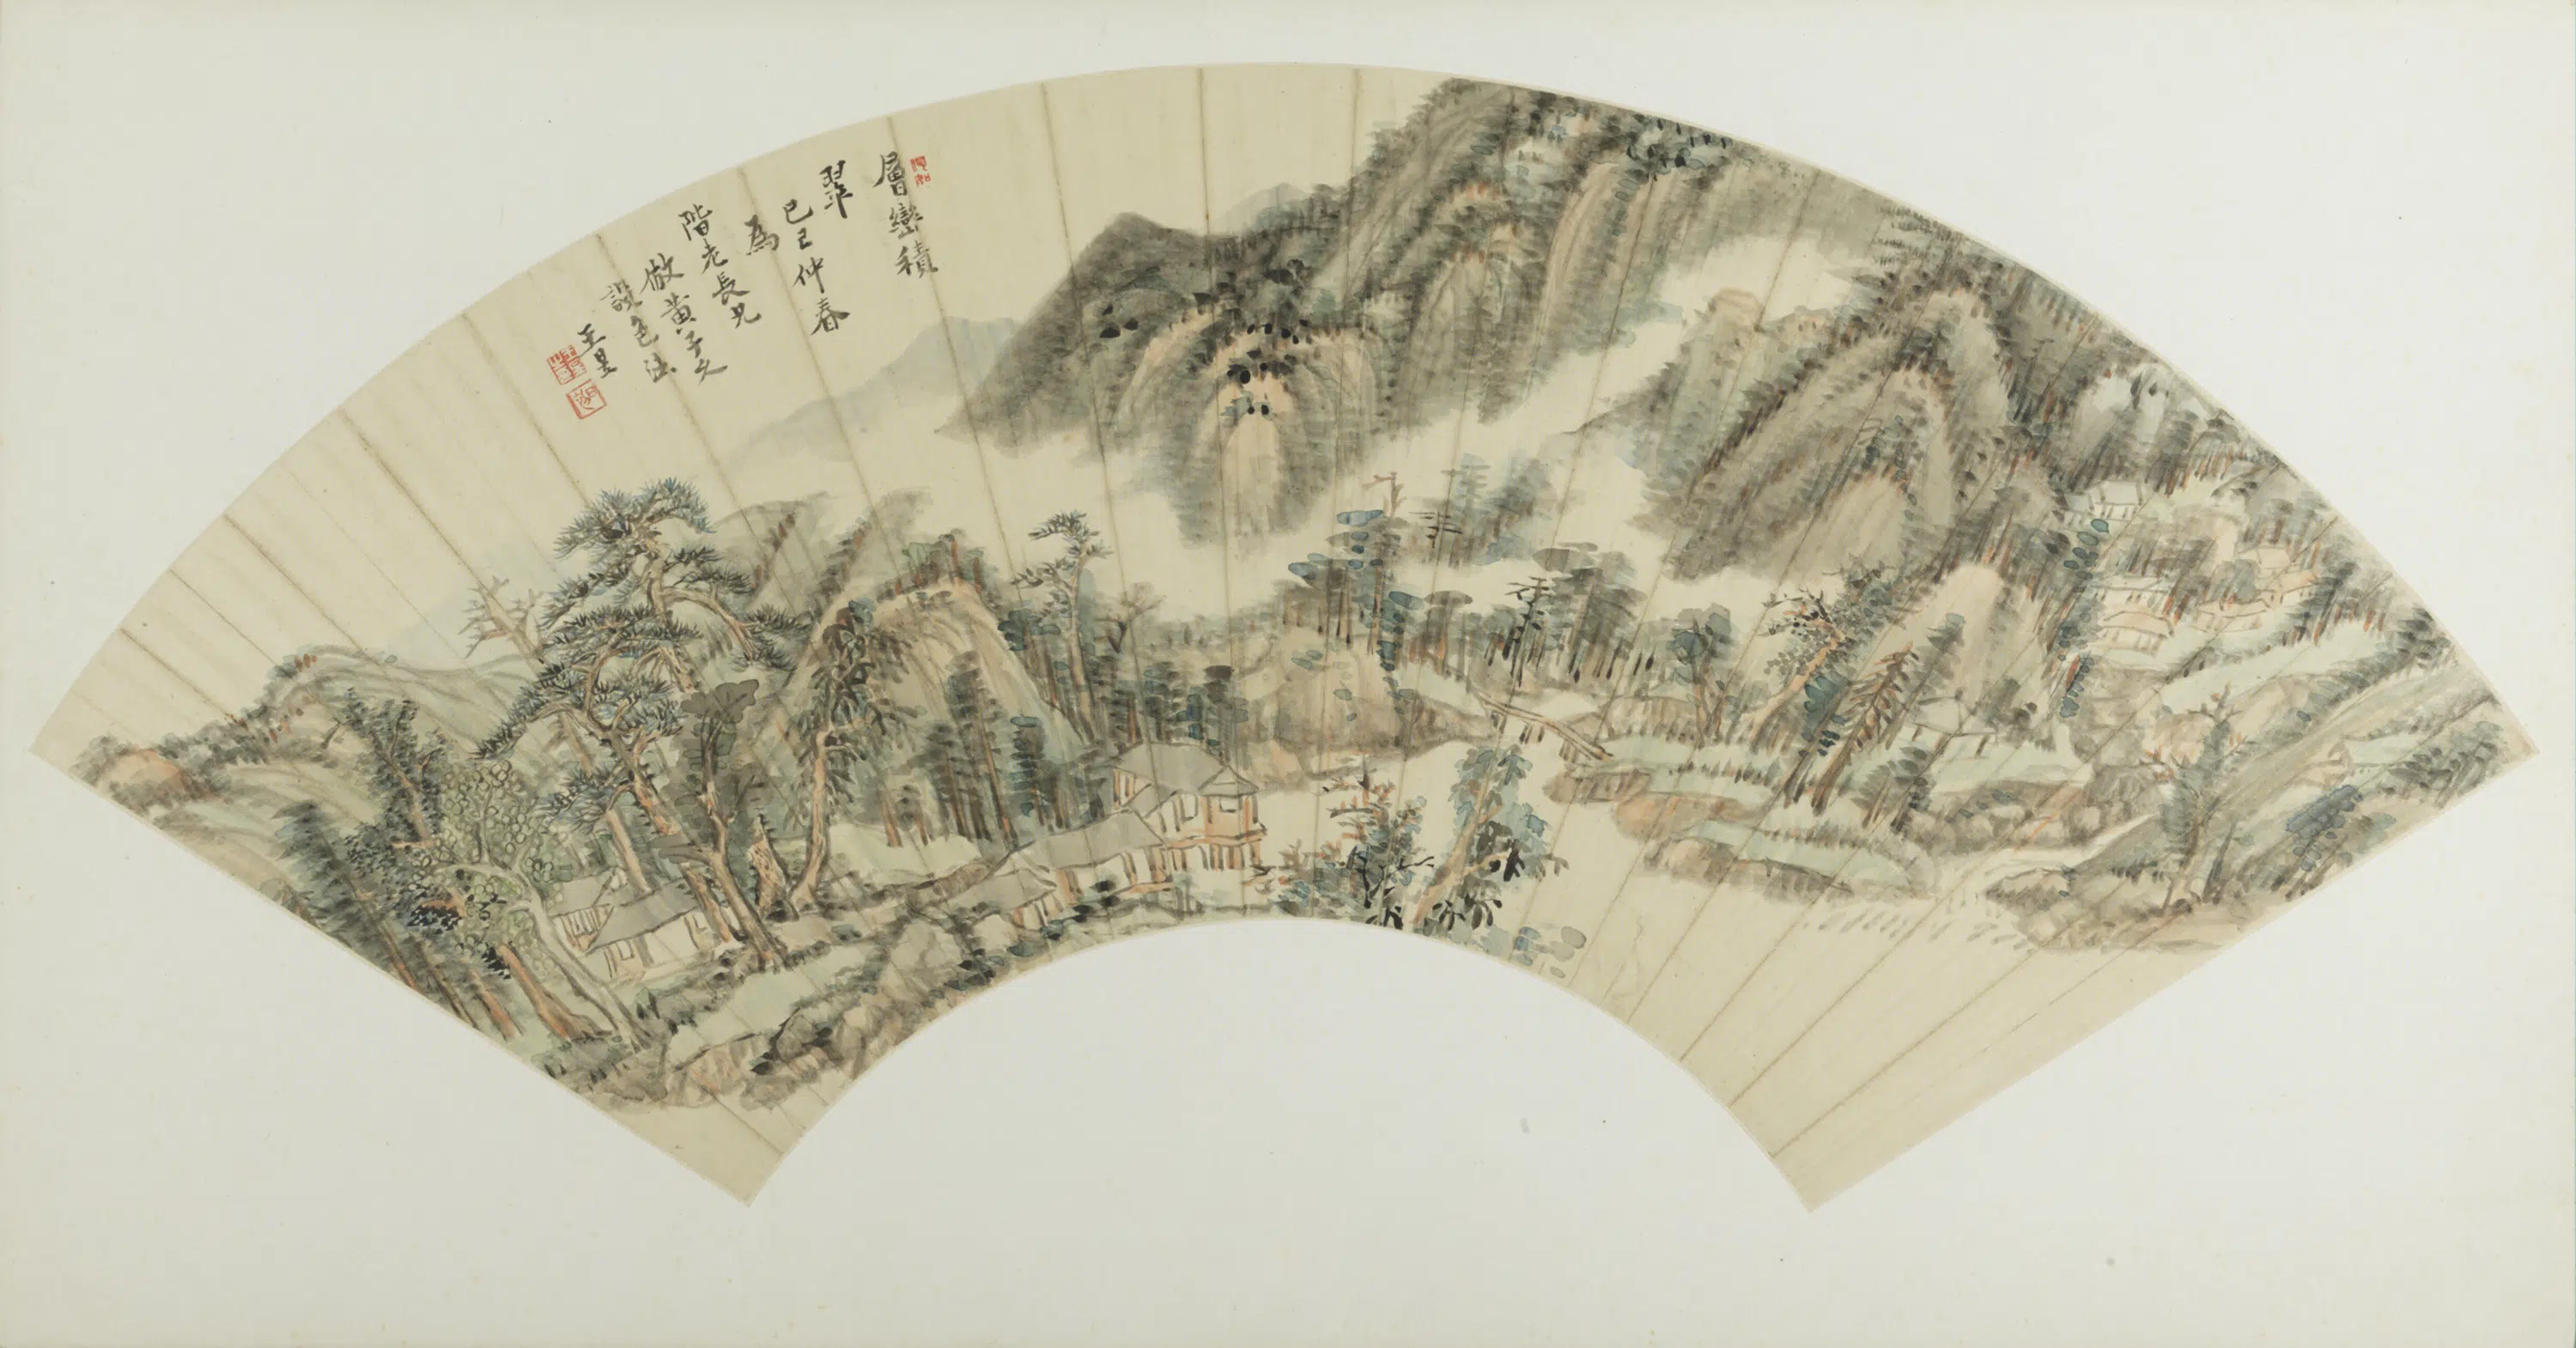 層巒積
翠
己巳仲春
為
階老長兄
倣黃子久
設色法
王昱